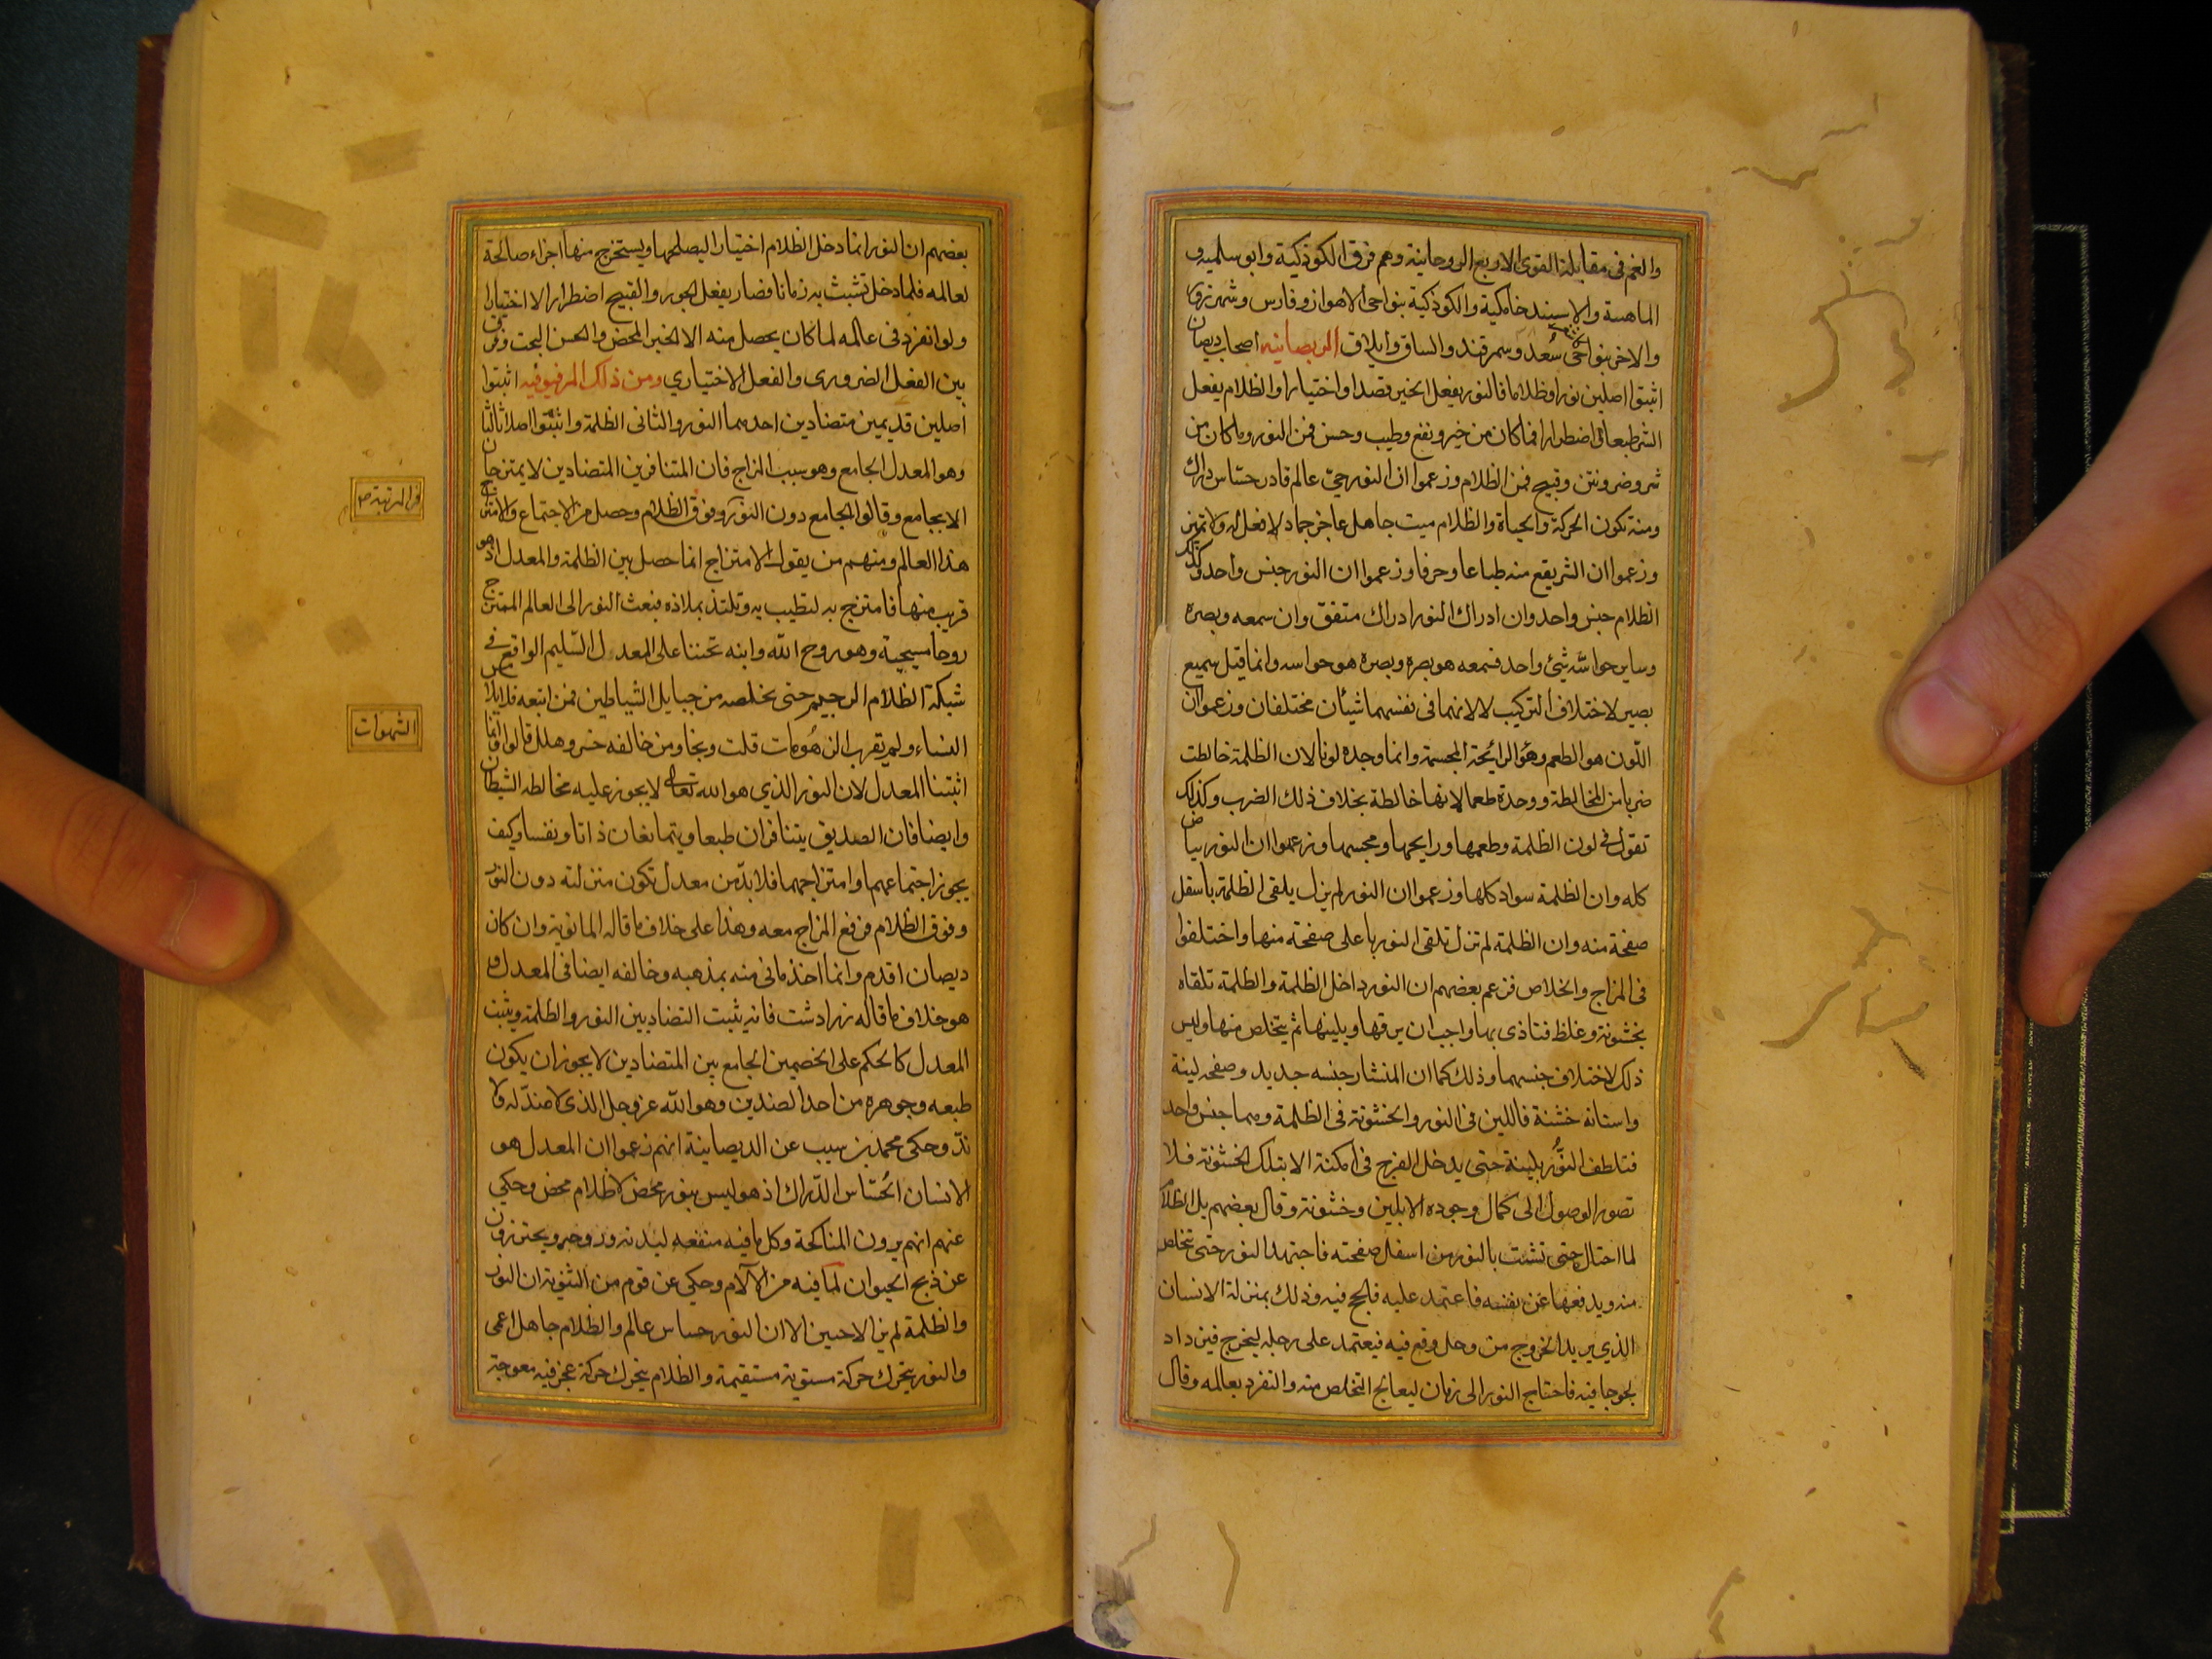 والغم فى مقابلة القوى الاربع الروحانية وهم فرق الكوذكية وابو سلميه و
الماهسة والاسبند خامكية والكوذكية بنواحى الاهواز وفارس وشهرزور
والاخر بنواحى سُعد وسمرقند والساق وايلاق الديصانيه اصحاب ديصان
اثبتوا اصلين نورا وظلاما فالنور يفعل الخير قصدا واختيارا والظلام يفعل
الشر طبعا اضطرارا فما كان من خير ونفع وطيب وحسن فمن النور وما كان من
شر وضر ونتن وقبيح فمن الظلام وزعموا ان النور حىّ عالم قادر حسّاس دراك
ومنه تكون الحركة والحياة والظلام ميت جاهل عاجز جماد لا فعل له ولا تميز
وزعموا ان الشر يقع منه طباعا وخرقا وزعموا ان النور جنس واحد وكذلك
الظلام جنس واحد وان ادراك النور ادراك متفق وان سمعه وبصره
وساير حواسّه شئ واحد فسمعه هو بصره وبصره هو حواسه وانما قيل سميع
بصير لاختلاف التركيب لا لانهما فى نفسهما شيأن مختلفان وزعموا ان
اللّون هو الطعم وهو الرائحة المجسمة وانما وجده لونا لان الظلمة خالطت
ضربا من المخالطة ووجدة طعما لانها خالطة بخلاف ذلك الضرب وكذلك
تقول فى لون الظلمة وطعمها ورايحها ومجسمها وزعموا ان النور بياض
كله وان الظلمة سواد كلها وزعموا ان النور لم يزل يلقى الظلمة باسفل
صفحة منه وان الظلمة لم تزل تلقى النور باعلى صفحته منها واختلفوا
فى المزاج والخلاص فزعم بعضهم ان النور داخل الظلمة والظلمة تلقاه
بخشونة وغلظ فتاذى بها واجب ان يرقها ويلينها ثم يتخلص منها وليس
ذلك لاختلاف جنسهما وذلك كما ان المنشار جنسه جديد وصفحه لينة
واسنانه خشنة فاللين فى النور والخشونة فى الظلمة وهما جنس واحد
فتلطف النور بلينة حتى يدخل الفرج فى امكنة الا بتلك الخشونة فلا
تصور الوصول الى كمال وجوده الا بلين وخشونة وقال بعضهم بل الظلام
لما احتال حتى تشبث بالنور من اسفل صفحته فاجتهد النور حتى تخلص
منه ويدفعها عن نفسه فاعتمد عليه فلجج فيه وذلك بمنزلة الانسان
الذي يريد الخروج من وحل وقع فيه فيعتمد على رجله ليخرج فيزداد
لجوجا فيه فاحتاج النور الى زمان ليعالج التخلص منه والتفرد بعالمه وقال
بعضهم ان النور انما دخل الظلام اختيارا ليصلحها ويستخرج منها اجزاء صالحة
لعالمه فلما دخل تشبث به زمانا فصار يفعل الجور والقبيح اضطرارا لا اختيارا
ولو انفرد فى عالمه لما كان يحصل منه الا الخير المحض والحسن البحت وفرق
بين الفعل الضرورى والفعل الاختياري ومن ذلك المرقيونيه اثبتوا
اصلين قديمين متضادين احدهما النور والثانى الظلمة واثبتوا اصلا ثالثا
وهو المعدل الجامع وهو سبب المزاج فان المتنافرين المتضادين لا يمتزجان
الا بجامع وقالوا الجامع دون النور وفوق الظلام وحصل من الاجتماع والامتزاج
هذا العالم ومنهم من يقول الامتزاج انما حصل بين الظلمة والمعدل اذ هو
قريب منها فامتزج به لتطيب به وتلتذ بملاذه فبعث النور الى العالم الممتزج
روحا مسيحية وهو روح الله وابنه تحننا على المعدل السّليم الواقع فى
شبكة الظلام الرجيم حتى يخلصه من حبايل الشياطين فمن اتبعه فلا يلامس
النساء ولم يقرب الزهُومات قلت ونجا ومن خالفه خسر وهلك قالوا وانما
اثبتنا المعدل لان النور الذي هو الله تعالى لا يجوز عليه مخالطه الشيطان
وايضا فان الصديق يتنافران طبعا ويتمانعان ذاتا ونفسا وكيف
يجوز اجتماعهما وامتزاجهما فلا بدّ من معدل تكون منزلته دون النور
وفوق الظلام فرفع المزاج معه وهذا على خلاف ما قاله المانوية وان كان
ديصان اقدم وانما اخذ مانى منه بمذهبه وخالفه ايضا فى المعدل و
هو خلاف ما قاله زرادشت فانه يثبت التضاد بين النور والظلمة ويثبت
المعدل كالحكم على الخصمين الجامع بين المتضادين لا يجوز ان يكون
طبعه وجوهره من احد الضدين وهو الله عز وجل الذى لا ضدّ له ولا
ندّ وحكى محمد بن سبيب عن الديصانية انهم زعموا ان المعدل هو
الانسان الحسّاس الدّراك اذ هو ليس بنور محض لا ظلام محض وحكي
عنهم انهم يرون المناكحة وكل ما فيه منفعه لبدنه وروحه ويحترزون
عن ذبح الحيوان لما فيه من الآلام وحكي عن قوم من الثنوية ان النور
والظلمة لم يزالا حيين الا ان النور حساس عالم والظلام جاهل اعمى
والنور يتحرك حركة مستوية مستقيمة والظلام يتحرك حركة عجرفيه معوجة
الشهوات